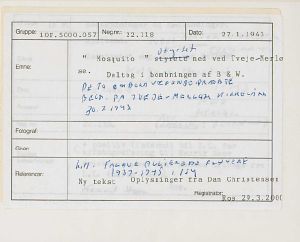 Gruppe: 10F.5000.057 Neg.nr.: 32.118 Dato: 27.1.1943
styrtet
Emne: " Mosquito " styrtet ned ved Tveje-Merlø
se. Deltog i bombningen af B & W.
DE TO OMBOMNE
BEGR. PÅ TVEJE-MERLØSE KIRKEGÅRD
30.1.1943
Fotograf:
Giver:
Referencer: Litt. FALDNE ALLIEREDE FLYVERE
1939-1945, s.
Ny tekst Oplysninger fra Dan Christensen
Registrator:
Ros 29.3.2000